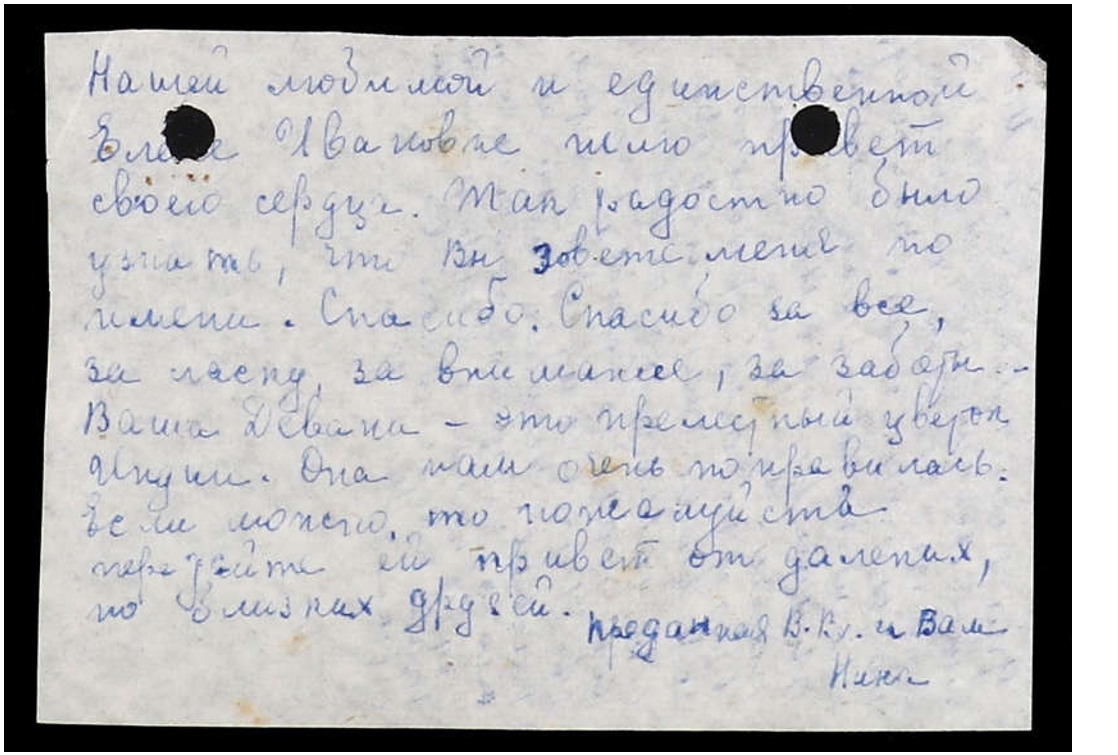 Нашей любимой и единственной
Елене Ивановне шлю привет
своего сердца. Так радостно было
узнать, что Вы зовете меня по
имени. Спасибо. Спасибо за все,
за ласку, за внимание, за заботы...
Ваша Девака - это прелестный цветок
Индии. Она нам очень понравилась.
Если можно, то пожалуйста
передайте ей привет от далеких,
но близких друзей.
преданная В.Вл. и Вам
Нина